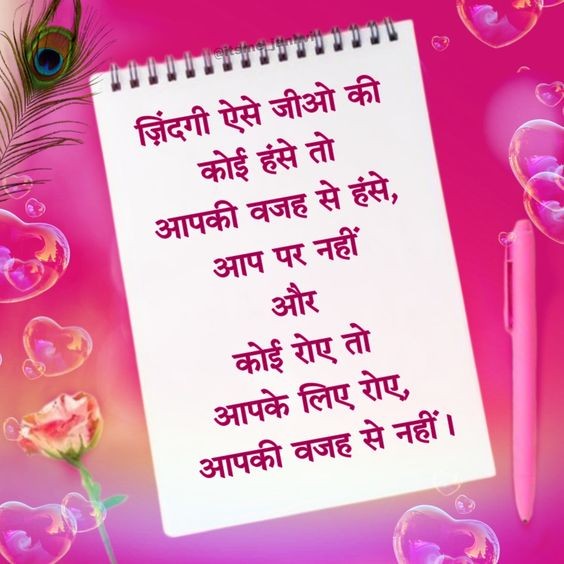 ज़िंदगी ऐसे जीओ की
कोई हंसे तो
आपकी वजह से हंसे,
आप पर नहीं
और
कोई रोए तो
आपके लिए रोए,
आपकी वजह से नहीं।